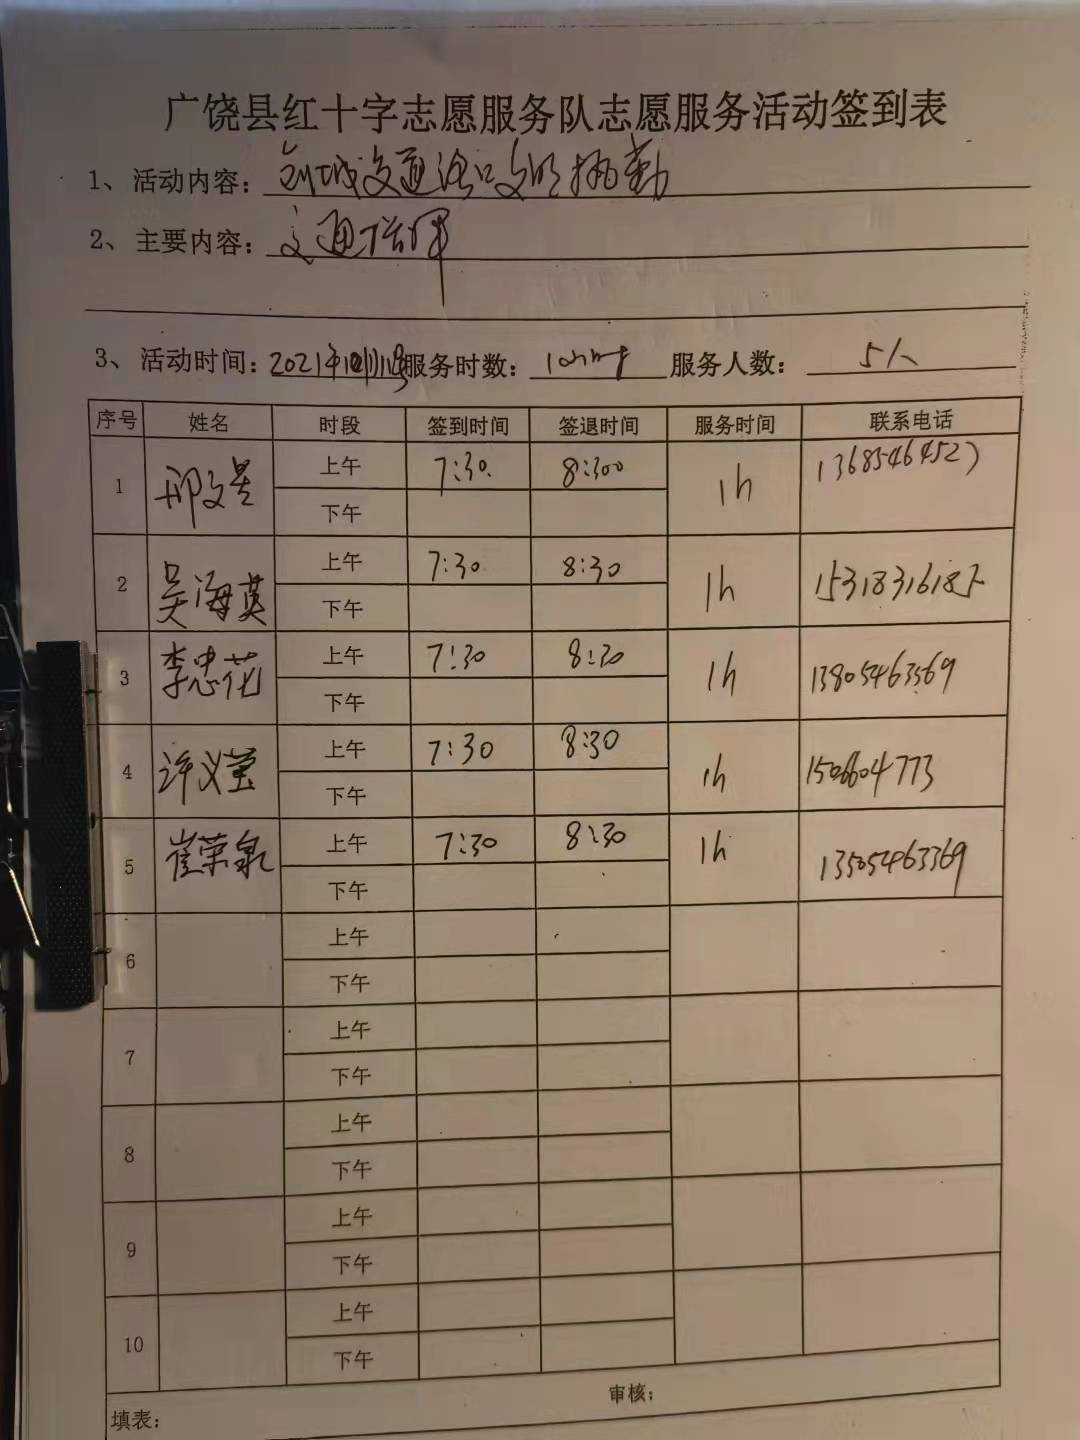 广饶县红十字志愿服务队志愿服务活动签到表
1、活动内容：创城交通路口文明执勤
2、主要内容：交通指挥
3、活动时间：2021年 服务时数： 服务人数：5人
序号 姓名 时段 签到时间 签退时间 服务时间 联系电话
1 邢文景 上午 7:30 8:300 1h 13685464527
下午
2 吴海英 上午 7:30 8:30 1h
下午
3 李忠花 上午 7:30 8:30 1h 13805463569
下午
4 许义莹 上午 7:30 8:30 1h
下午
5 崔荣泉 上午 7:30 8:30 1h 13505463369
下午
6 上午
下午
7 上午
下午
8 上午
下午
9 上午
下午
10 上午
下午
填表： 审核：